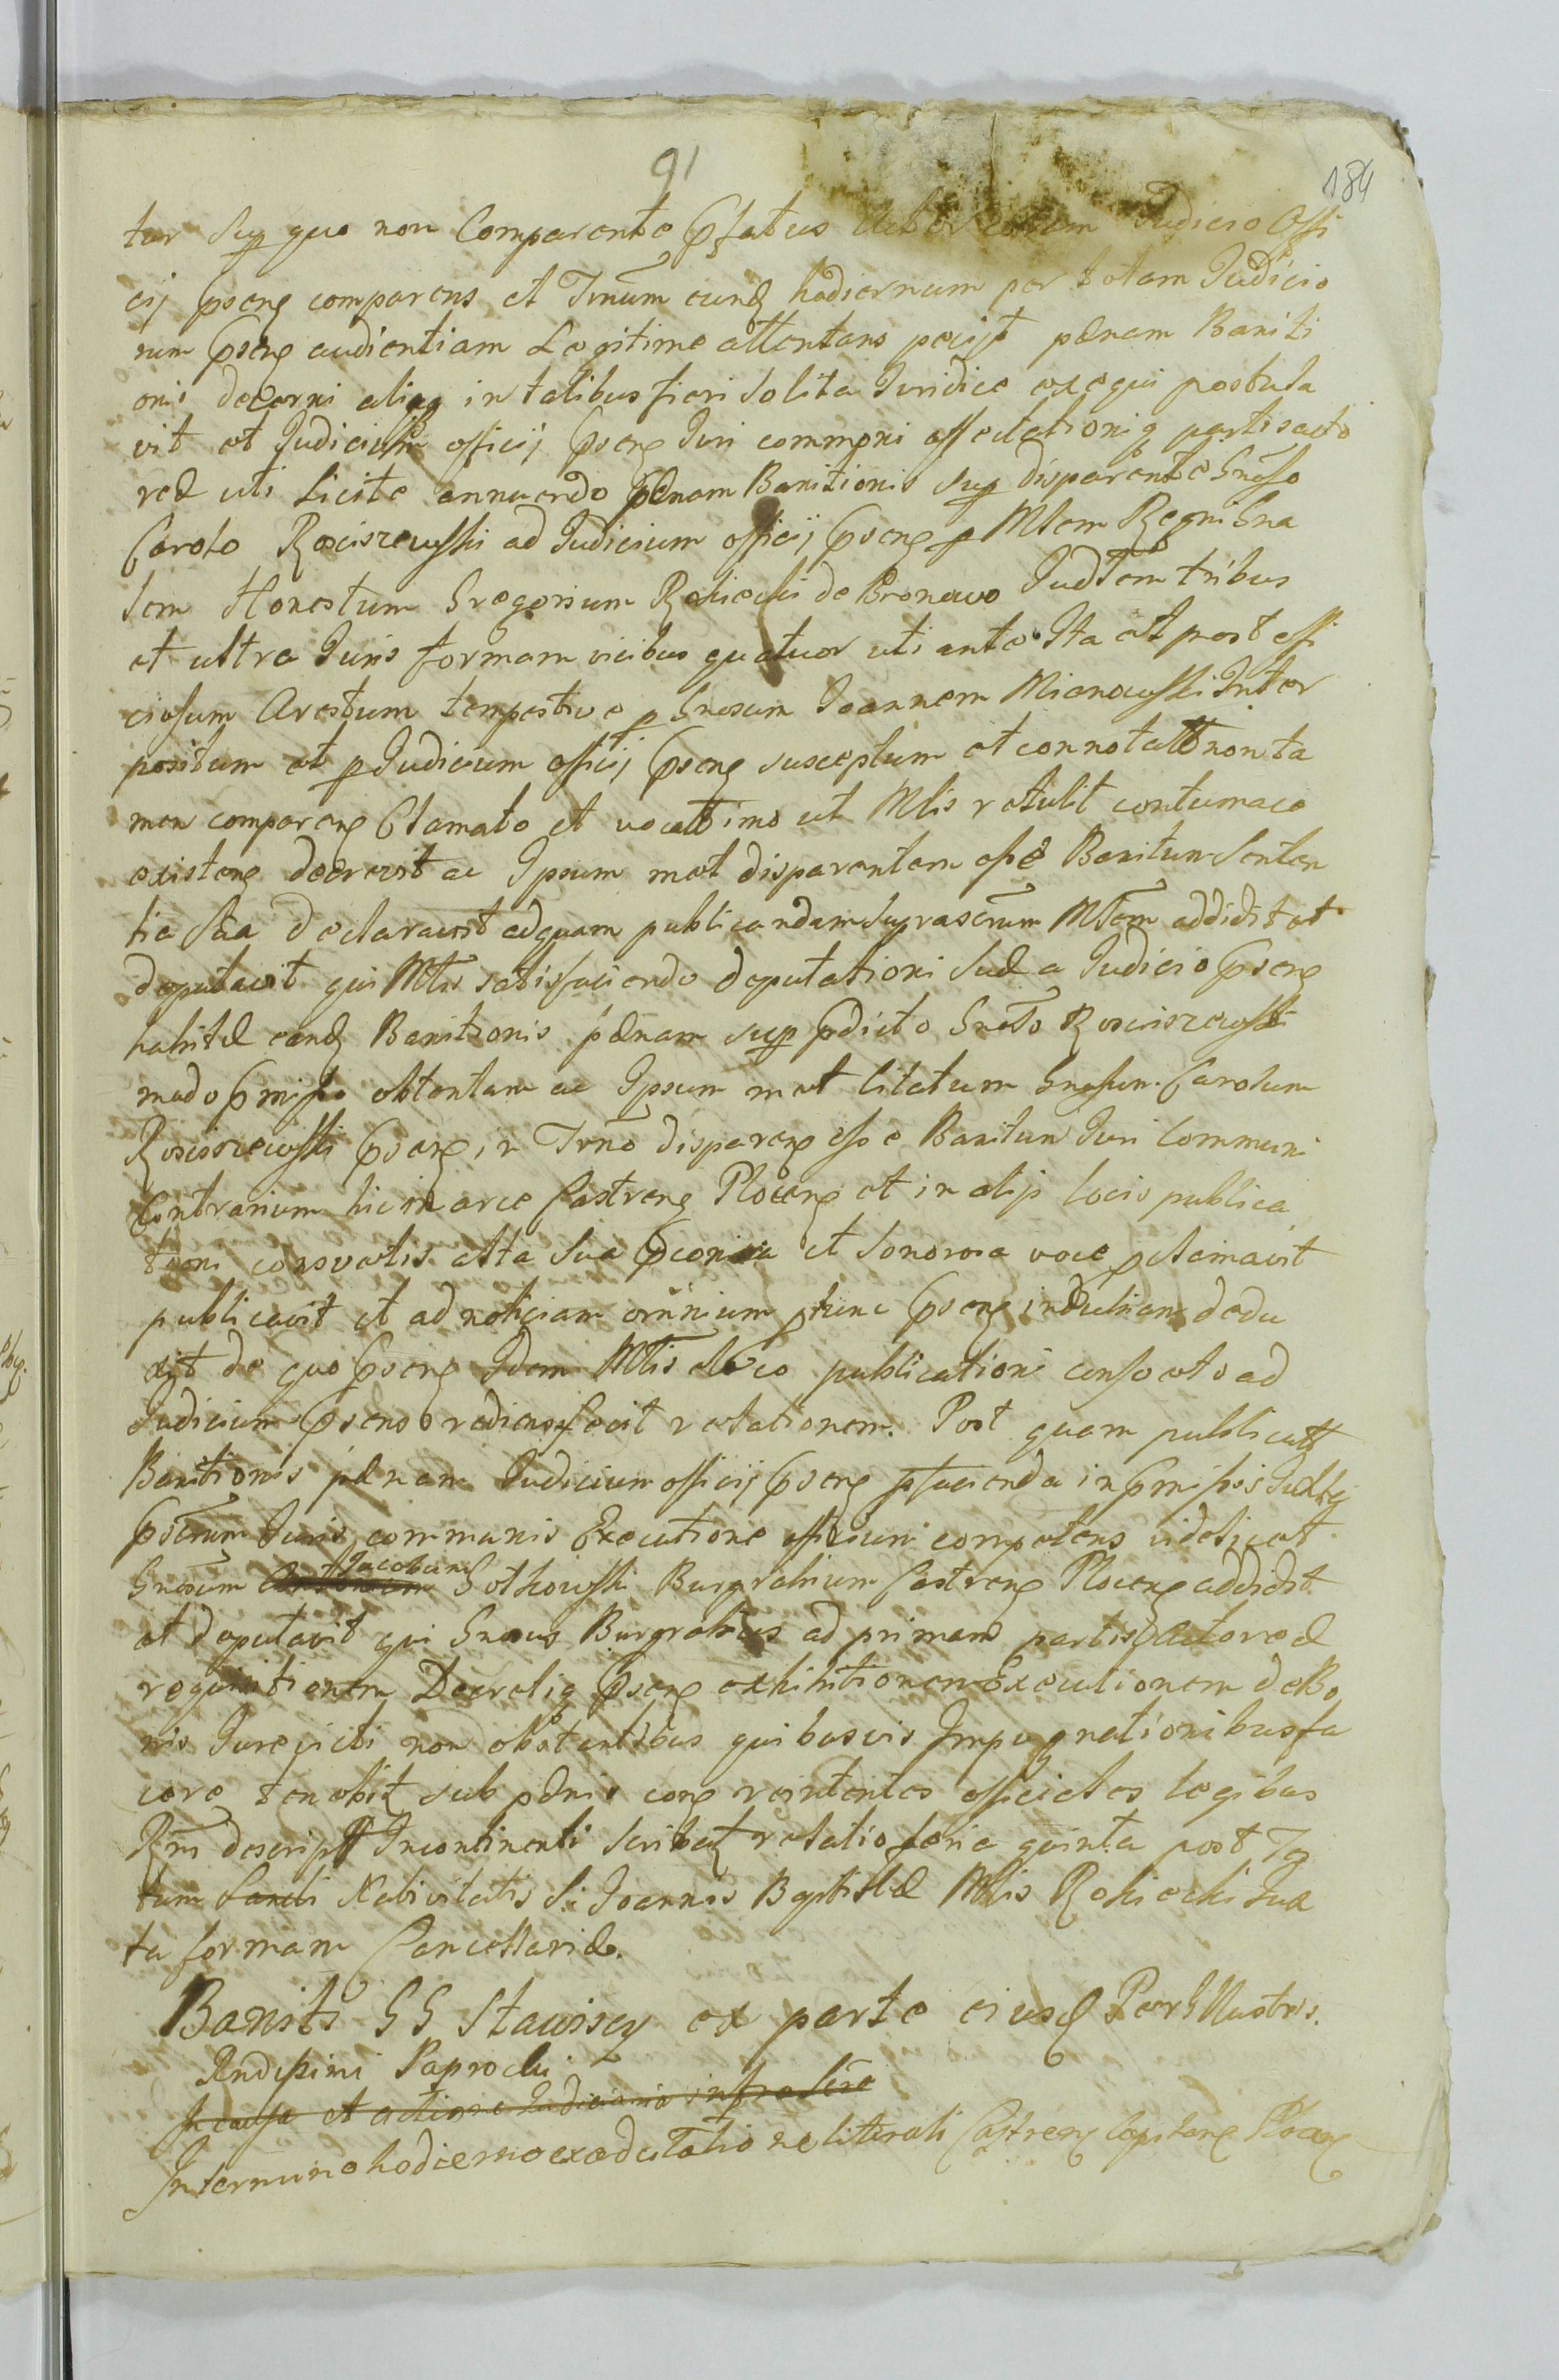 91
184
tur Sup quo non Comparente Pfatus Actor eorem Judicio Offi
cij Psens comparens et Tmum eund hodiernum per totam Judicio
rum Psens audientiam Legitime attentans petijt pœnam Baniti
onis decerni aliaq in talibus fieri Solita Juridice exequi postula
vit et Judicium officij Psens Juri communi affectationiq partis acto
reæ uti Licite annuendo pœnam Banitionis sup disparente Gnoso
Carolo Rosciszewski ad Judicium officij Psens p Mlem Regni Gna
lem Honestum Gregorium Rokicki de Bronowo Judtem tribus
et ultra Juris formam vicibus quatuor uti ante Ita et post offi
ciosum Arestum tempestive p Gnosum Joannem Mianowski Inter
positum et p Judicium officij Psens susceptum et connotatt non ta
men comparens Clamato et vocatt imo ut Mlis retulit contumace
existens decrevit ac Ipsum met disparentem esse Banitum Senten
tia Sua declaravit ad quam publicandam Suprascrum Mlem addidit et
deputavit qui Mlis satisfaciendo deputationi Suæ a Judicio Psens
habitæ eand Banitionis pœnam sup Pdicto Gnoso Rosciszewski
modo Pmisso obtentam ac Ipsum met Citatum Gnosum Carolum
Rosciszewski Psens in Trno disparens esse Banitum Juri Communi
Contrarium hic in arce Castrens Plocens et in alijs locis publica
tioni consvetis alta Sua Pconisa et Sonorosa voce pclamavit
publicavit et ad notitiam omnium ptunc Psens indubiam dedu
xit de quo Psens Idem Mlis loco publicationi consveto ad
Judicium Psens rediens fecit relationem. Post quam publicatt
Banitionis pœnam Judicium officij Psens p facienda in Pmissis Juxtq
Pscrum Juris communis Executione officium competens videlicet
Gnosum Jacobum Sotkowski Burgrabium Castrens Plocens addidit
et deputavit qui Gnosus Burgrabius ad primam partis Actoreæ
requisitionem Decretiq Psens exhibitionem Executionem de Bo
nis Jurevicti non obstantibus quibusvis Impugnationibus fa
cere tenebit sub pœnis cons renitentes officiales legibus
Rni descript Incontinenti Scribat relatio feria quinta post Fes
tum Sancti Nativitatis S. Joannis Baptistæ Mlis Rokicki Jux
ta formam Cancellariæ.
Banits GG Stawiscy ex parte eiusd Perillustris.
Rndissimi Paprocki
In causa et actione Judiciaria infrascra
In termino hodierno ex ad citatione literali Castrens Capitane Plocens